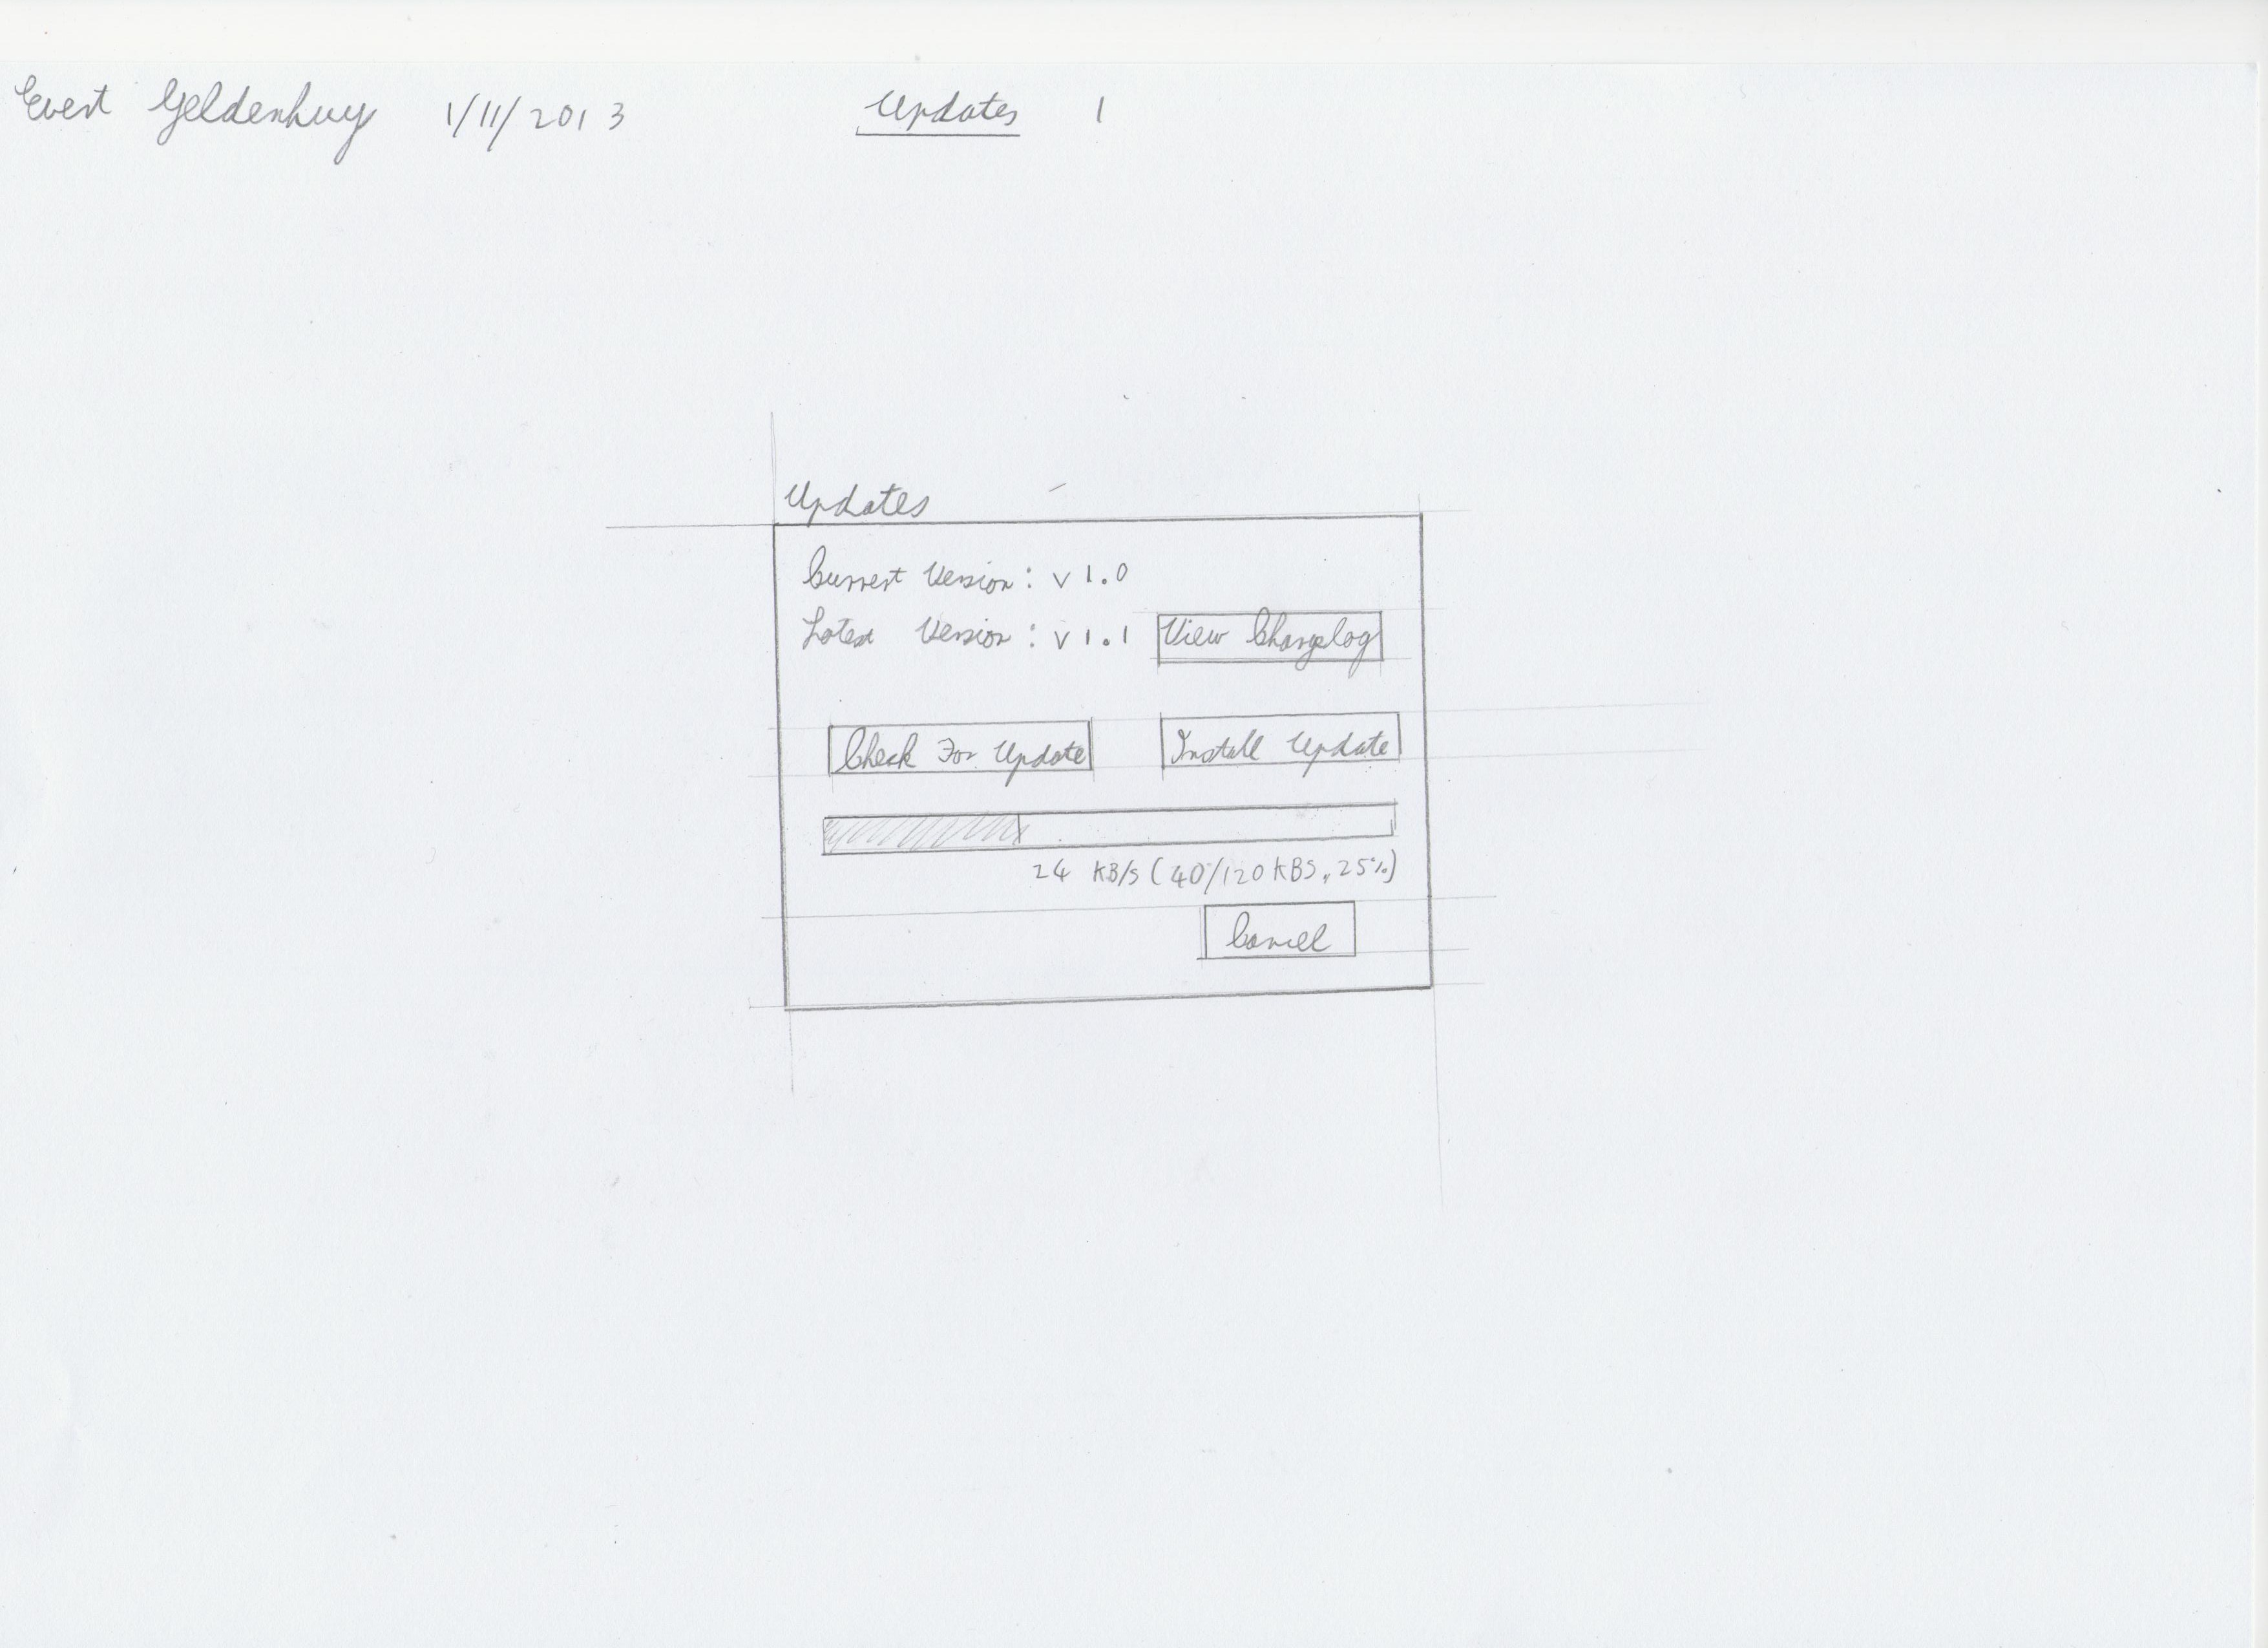 Evert Geldenhuy 1/11/2013 Updates 1
Updates
Current Version: v 1.0
Latest Version: v 1.1 View Changelog
Check For Update Install Update
24 KB/s (40/120 KBS, 25%)
Cancel